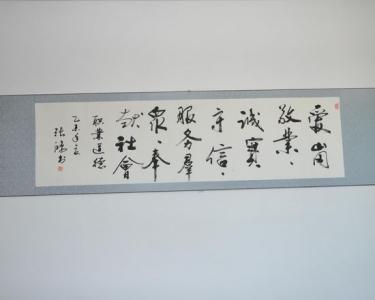 愛崗
敬業、
誠實
守信、
服务羣
衆、奉
献社會
职業道德
乙未年夏
张 书